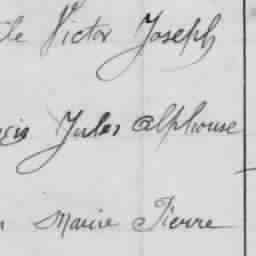 Victor Joseph
Jules Alphonse
Marie Pierre